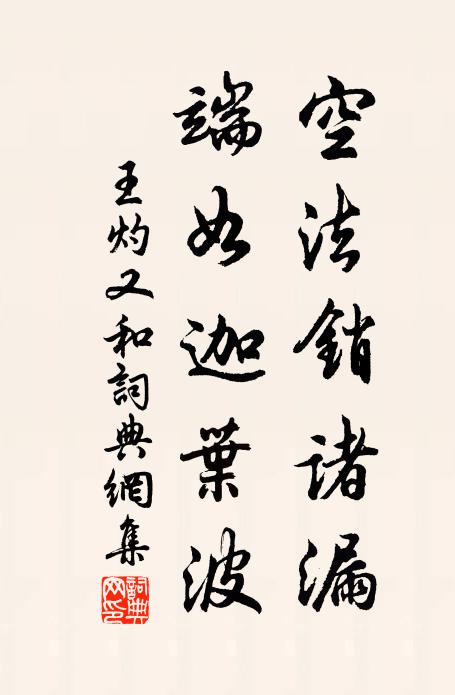 空法銷諸漏
端如迦葉波
王灼又和詞典網集
詞典网印